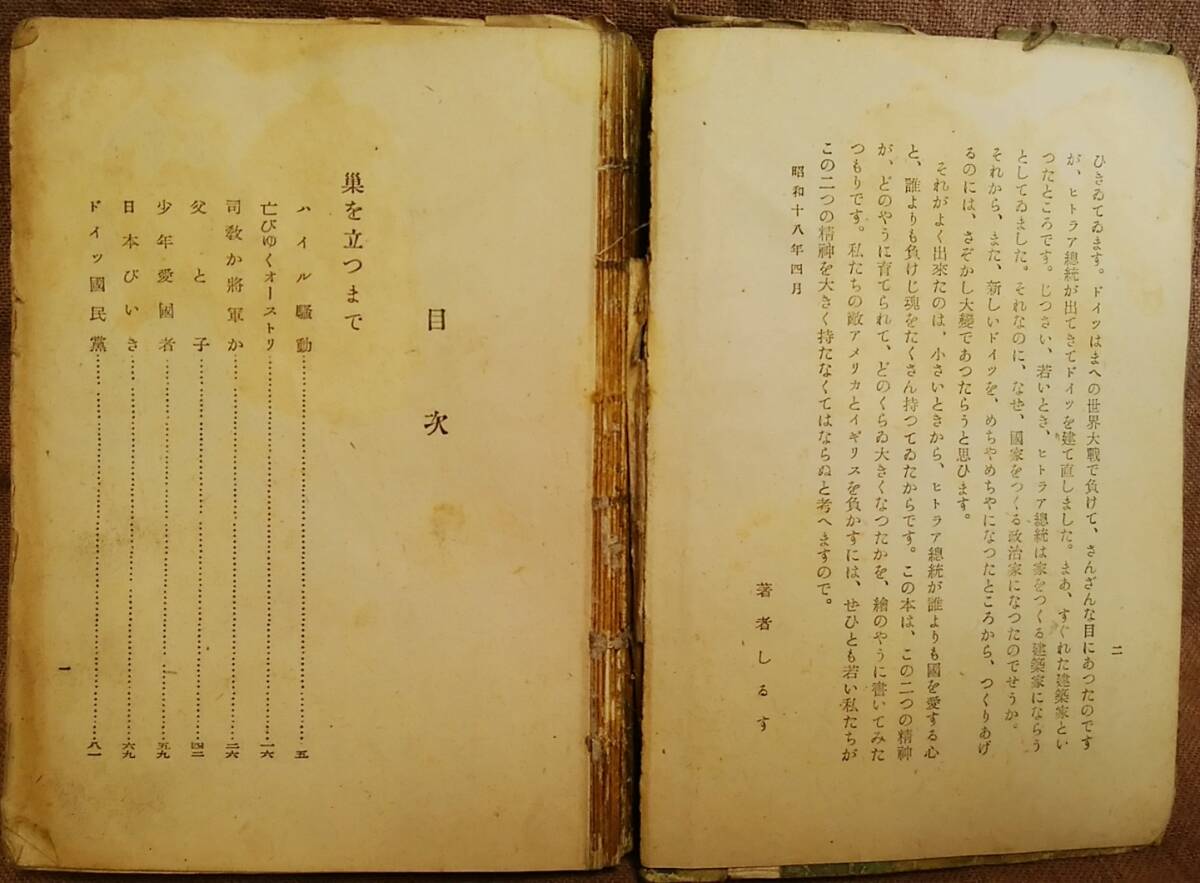 二
ひきゐてゐます。ドイツはまへの世界大戰で負けて、さんざんな目にあつたのです
が、ヒトラア總統が出てきてドイツを建て直しました。まあ、すぐれた建築家とい
つたところです。じつさい、若いとき、ヒトラア總統は家をつくる建築家にならう
としてゐました。それなのに、なぜ、國家をつくる政治家になつたのでせうか。
それから、また、新しいドイツを、めちやめちやになつたところから、つくりあげ
るのには、さぞかし大變であつたらうと思ひます。
それがよく出來たのは、小さいときから、ヒトラア總統が誰よりも國を愛する心
と、誰よりも負けじ魂をたくさん持つてゐたからです。この本は、この二つの精神
が、どのやうに育てられて、どのくらゐ大きくなつたかを、繪のやうに書いてみた
つもりです。私たちの敵アメリカとイギリスを負かすには、ぜひとも若い私たちが
この二つの精神を大きく持たなくてはならぬと考へますので。
昭和十八年四月
著者しるす
目次
巢を立つまで
ハイル騷動……五
亡びゆくオーストリ……一六
司敎か將軍か……二六
父と子……四二
少年愛國者……五九
日本びいき……六九
ドイツ國民黨……八一
一